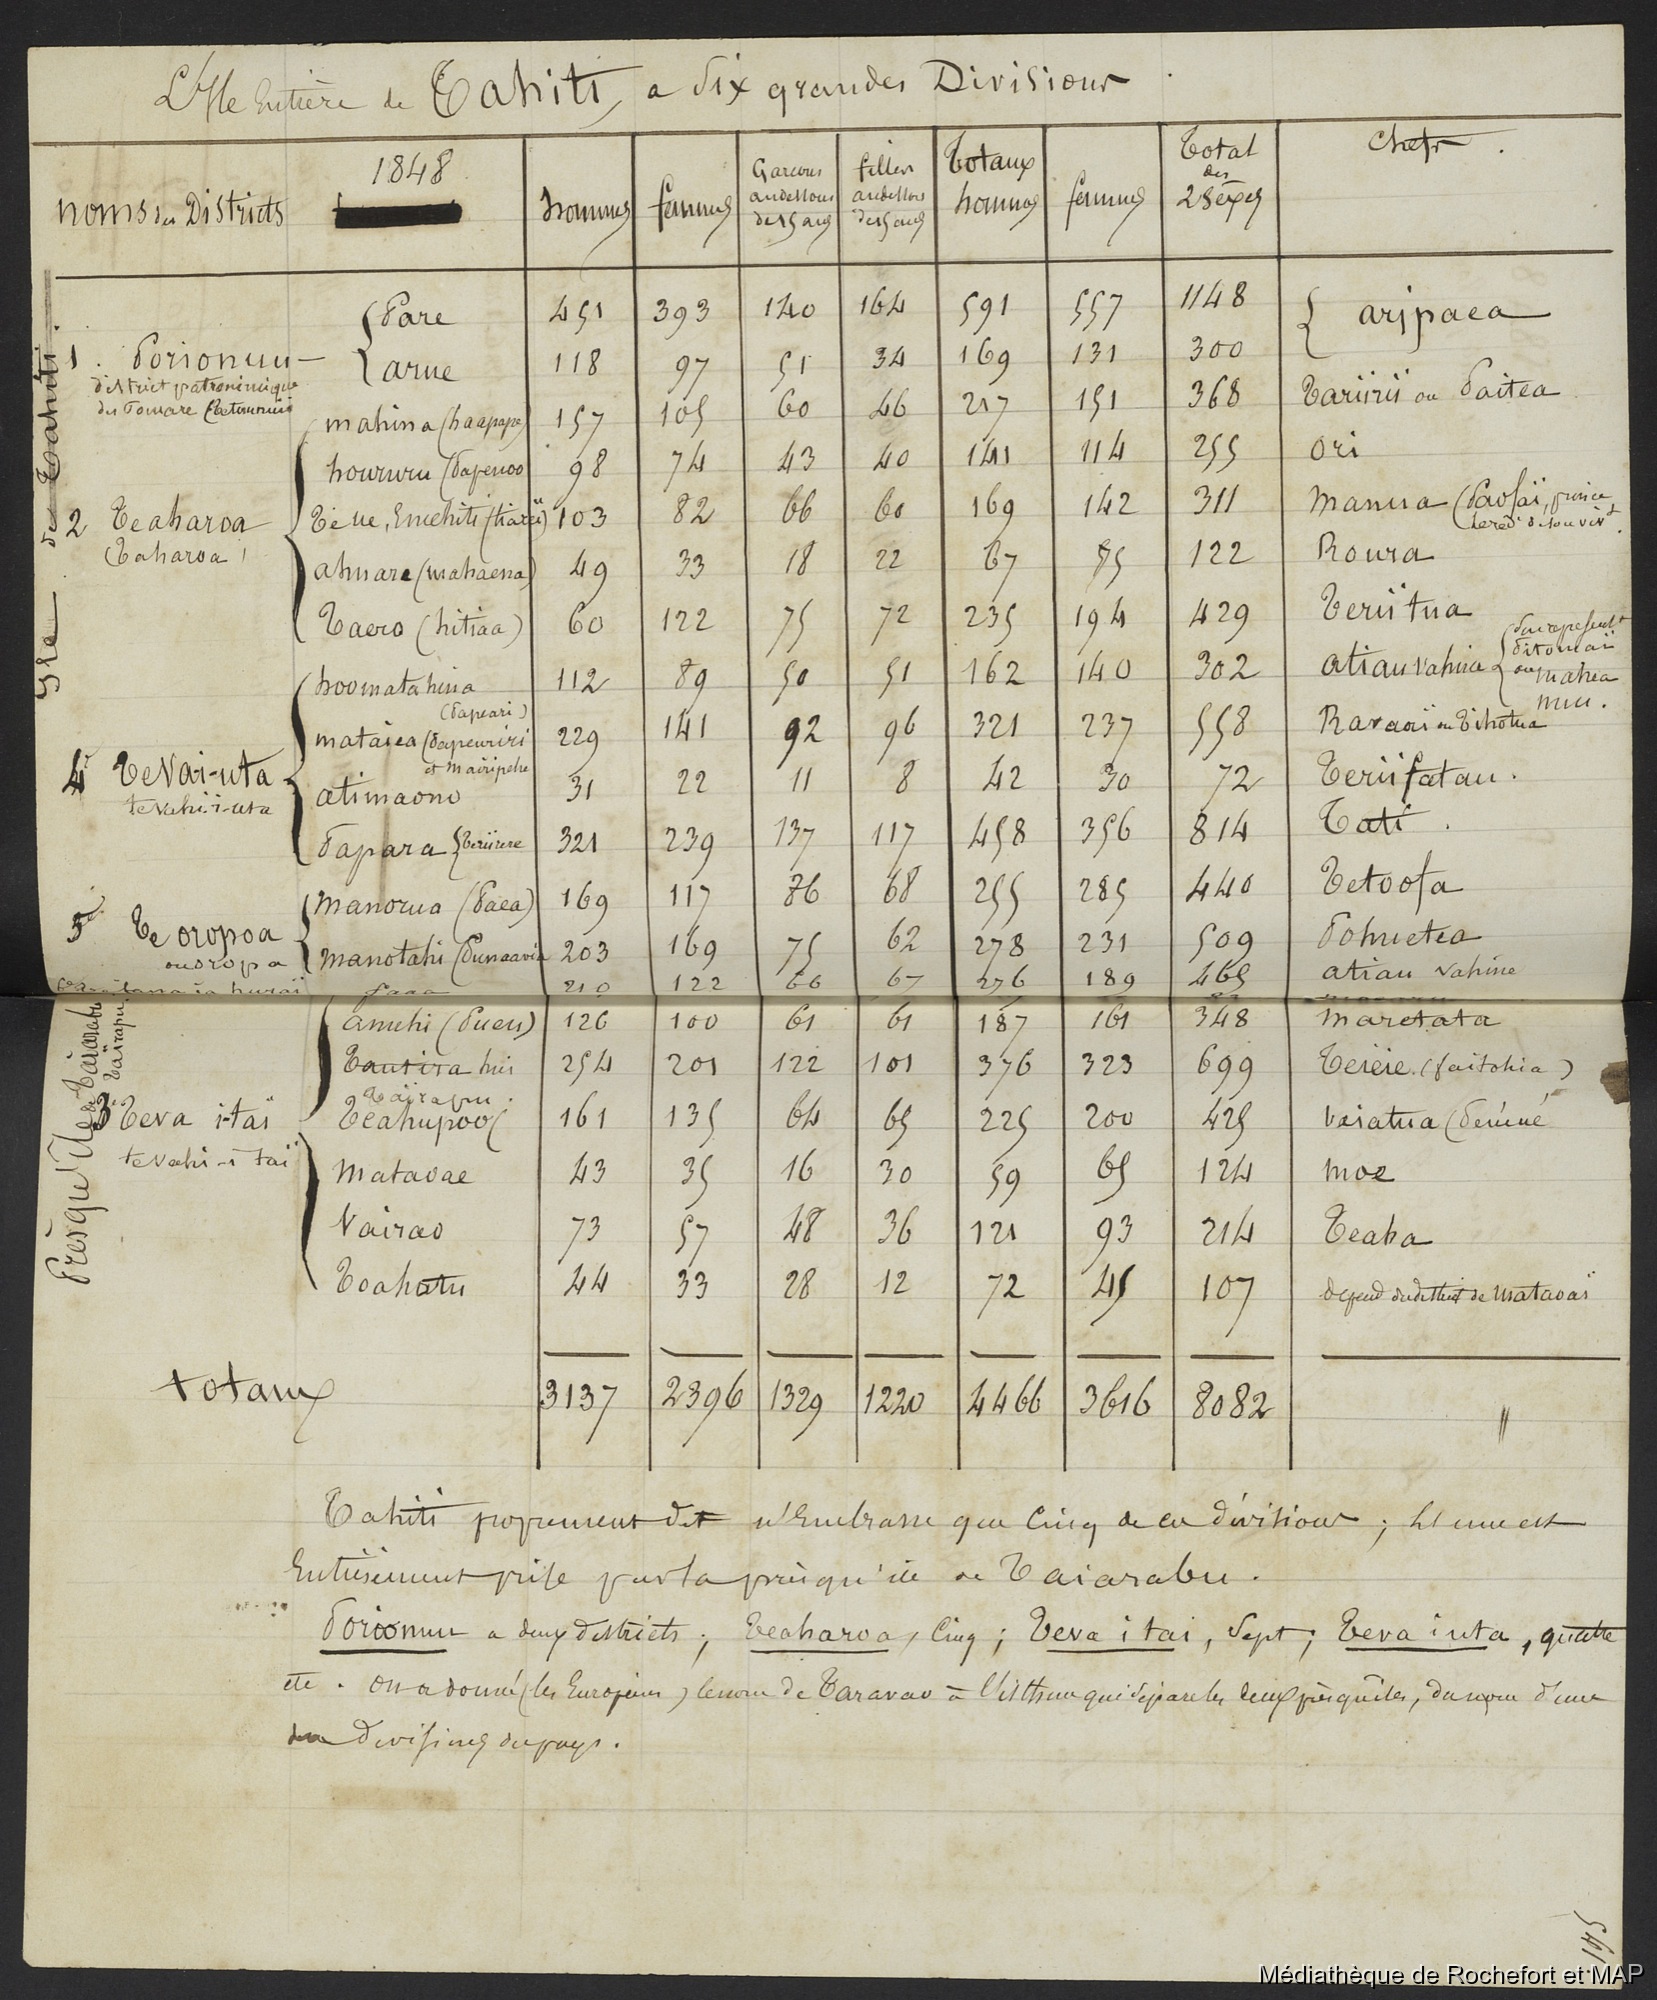 L'Isle Entière de Tahiti, a Six grandes Divisions
noms des Districts 1848 hommes femmes Garçons audessous de 15 ans filles audessous de 15 ans Totaux hommes femmes Total des 2 Sexes Chefs.
Isle de Tahiti.
1. Porionuu
district patronimique
des Pomare
Pare 451 393 140 164 591 557 1148 aripaea
arue 118 97 51 34 169 131 300
mahina (haapape) 157 105 60 46 217 151 368 Tariirii ou Paitea
2 Teaharoa
(Taharoa)
houruru (Papenoo 98 74 43 40 141 114 255 ori
Teue, Enehiti (tiarei) 103 82 66 60 169 142 311 manua (Paofaï, prince
ahuare (mahaena) 49 33 18 22 67 55 122 Roura
Taero (hitiaa) 60 122 75 72 235 194 429 Teriitua
hoomatahina 112 89 50 51 162 140 302 atiau vahine ou mahea
(Papeari)
mataiea (Papeuriri 229 141 92 96 321 237 558
et mairipehe
4e TeVai-uta
tevahi-i-uta
atimaono 31 22 11 8 42 30 72 Teriifatau.
Papara Teriirere 321 239 137 117 458 356 814 Tati.
5e Te oropoa
ou oropa
manorua (Paea) 169 117 86 68 255 285 440 Tetoofa
manotahi (Punaavia 203 169 75 62 278 231 509 Pohuetea
faaa 210 122 66 67 276 189 465 atiau vahine
Presqu'Ile de Taiarabu
Tairapu
anuhi (Pueu) 126 100 61 61 187 161 348 maretata
Tautira hui 254 201 122 101 376 323 699 Teieie. (faitohia)
Taïrapu.
3e Teva i-taï
tevahi-i taï
Teahupoo 161 135 64 65 225 200 425 vaiatua (Peúúé
mataoae 43 35 16 30 59 65 124 moe
Vairao 73 57 48 36 121 93 214 Teaha
Toahotu 44 33 28 12 72 45 107 depend du district de mataoaï
totaux 3137 2396 1329 1220 4466 3616 8082 "
Tahiti proprement dit n'Embrasse que Cinq de ces divisions; la une est
Entièrement prise par la presqu'ile de Taiarabu.
Porionuu a deux districts; Teaharoa, Cinq; Teva i tai, Sept; Teva i uta, quatre
etc. on a donné (les Européens) le nom de Taravao à l'isthme qui sépare les deux presqu'îles, du nom d'une
des divisions du pays.
145
Médiathèque de Rochefort et MAP